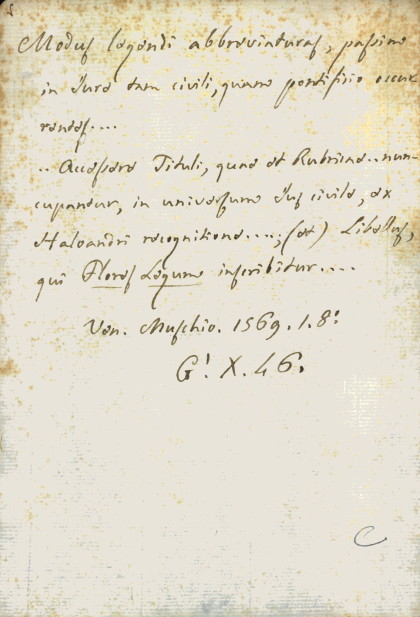 Modus legendi abbreviaturas, passim
in Jure tam civili, quam pontificio occur
rentes....
.. Accessere Tituli, quae et Rubricae.. nun-
cupantur, in universum Jus civile, ex
Haloandri recognitione....; (et) Libellus,
qui Flores Legum inscribitur....
Ven. Muschio. 1569. 1. 8º
G! X. 46.
C